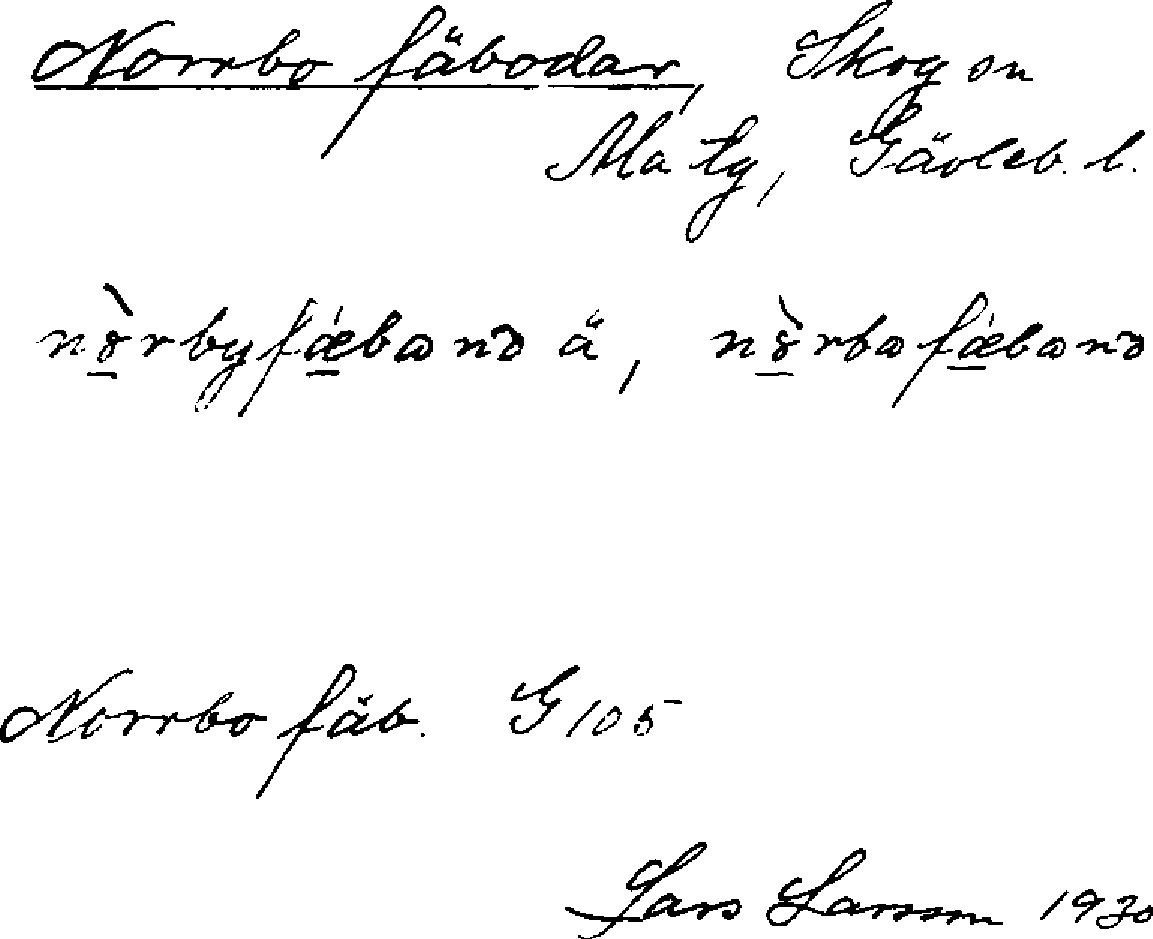 Norrbo fäbodar, Skog sn
Ala tg, Gävleb. l.
Norrbo fäb. G 105
Lars Larsson 1930